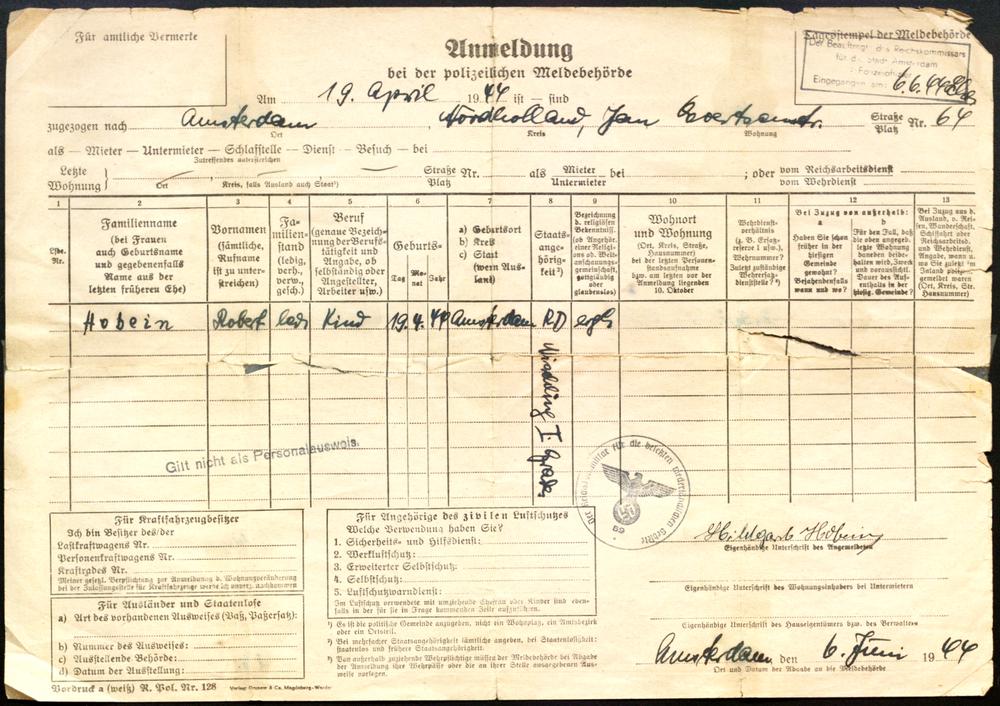 Für amtliche Vermerke
Anmeldung
bei der polizeilichen Meldebehörde
Tagesstempel der Meldebehörde
Der Beauftragte des Reichskommissars
für die Stadt Amsterdam
Eingegangen am: 6.6.44
Am 19. April 1944 ist — sind
zugezogen nach Amsterdam, Nordholland, Jan Evertsenstr. Straße Platz Nr. 64
Ort Kreis Wohnung
als — Mieter — Untermieter — Schlafstelle — Dienst — Besuch — bei
Zutreffendes unterstreichen
Letzte Wohnung } Straße Platz Nr. als Mieter Untermieter bei ; oder vom Reichsarbeitsdienst vom Wehrdienst
Ort Kreis, falls Ausland auch Staat¹)
1 2 3 4 5 6 7 8 9 10 11 12 13
Lfde. Nr.
Familienname
(bei Frauen
auch Geburtsname
und gegebenenfalls
Name aus der
letzten früheren Ehe)
Vornamen
(sämtliche,
Rufname
ist zu unter-
streichen)
Fa-
milien-
stand
(ledig,
verh.,
verw.,
gesch.)
Beruf
(genaue Bezeich-
nung der Berufs-
tätigkeit und
Angabe, ob
selbständig oder
Angestellter,
Arbeiter usw.)
Geburts-
Tag Mo-nat Jahr
a) Geburtsort
b) Kreis
c) Staat
(wenn Aus-
land)
Staats-
ange-
hörig-
keit²)
Bezeichnung
d. religiösen
Bekenntn.
(ob Angehö-
riger einer
Religionsges.
Weltanschauungs-
gemeinschaft,
gottgläubig
oder
glaubenslos)
Wohnort
und Wohnung
(Ort, Kreis, Straße,
Hausnummer)
bei der letzten Personen-
standsaufnahme
bzw. am letzten vor der
Anmeldung liegenden
10. Oktober
Wehrdienst-
verhältnis
(z. B. Ersatz-
reserve I usw.).
Wehrnummer?
Zuletzt zuständige
Wehrersatz-
dienststelle?³)
Bei Zuzug von außerhalb:
a
Haben Sie schon
früher in der
hiesigen
Gemeinde
gewohnt?
Bejahendenfalls
wann und wo?
b
Für den Fall, daß
die oben angegeb.
letzte Wohnung
daneben beibe-
halten wird, Zweck
und voraussichtl.
Dauer des Auf-
enthalts in der
hiesig. Gemeinde?
Bei Zuzug aus d.
Ausland, v. Rei-
sen, Wanderschaft,
Schiffahrt oder
Reichsarbeitsd.
und Wehrdienst,
Angabe, wann u.
wo Sie zuletzt im
Inland polizeil.
gemeldet waren
(Ort, Kreis, Str.
Hausnummer)
Hobein Robert led. Kind 19. 4. 44 Amsterdam RD
Gilt nicht als Personalausweis.
Der Reichskommissar für die besetzten niederländischen Gebiete
Für Kraftfahrzeugbesitzer
Ich bin Besitzer des/der
Lastkraftwagens Nr.
Personenkraftwagens Nr.
Kraftrades Nr.
Meiner gesetzl. Verpflichtung zur Anmeldung d. Wohnungsveränderung
bei der Zulassungsstelle für Kraftfahrzeuge werde ich unverz. nachkommen
Für Ausländer und Staatenlose
a) Art des vorhandenen Ausweises (Paß, Paßersatz):
b) Nummer des Ausweises:
c) Ausstellende Behörde:
d) Datum der Ausstellung:
Vordruck a (weiß) R. Pol. Nr. 128
Für Angehörige des zivilen Luftschutzes
Welche Verwendung haben Sie?
1. Sicherheits- und Hilfsdienst:
2. Werkluftschutz:
3. Erweiterter Selbstschutz:
4. Selbstschutz:
5. Luftschutzwarndienst:
Im Luftschutz verwendete mit umziehende Ehefrau oder Kinder sind eben-
falls in der für sie in Frage kommenden Zeile aufzuführen.
¹) Es ist die politische Gemeinde anzugeben, nicht ein Wohnplatz, ein Amtsbezirk
oder ein Ortsteil.
²) Bei mehrfacher Staatsangehörigkeit sämtliche angeben, bei Staatenlosigkeit:
staatenlos und frühere Staatsangehörigkeit.
³) Von außerhalb zuziehende Wehrpflichtige müssen der Meldebehörde bei Abgabe
der Anmeldung ihre Wehrpässe oder die an ihrer Stelle ausgegebenen Aus-
weise vorlegen.
Eigenhändige Unterschrift des Anmeldenden
Eigenhändige Unterschrift des Wohnungsinhabers bei Untermietern
Eigenhändige Unterschrift des Hauseigentümers bzw. des Verwalters
Amsterdam den 6. Juni 1944
Ort und Datum der Abgabe an die Meldebehörde